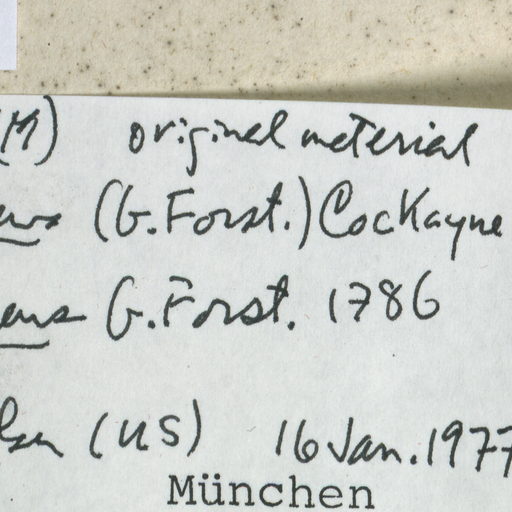 (M) original material
(G.Forst.) Cockayne
G.Forst. 1786
(US) 16 Jan. 1977
München